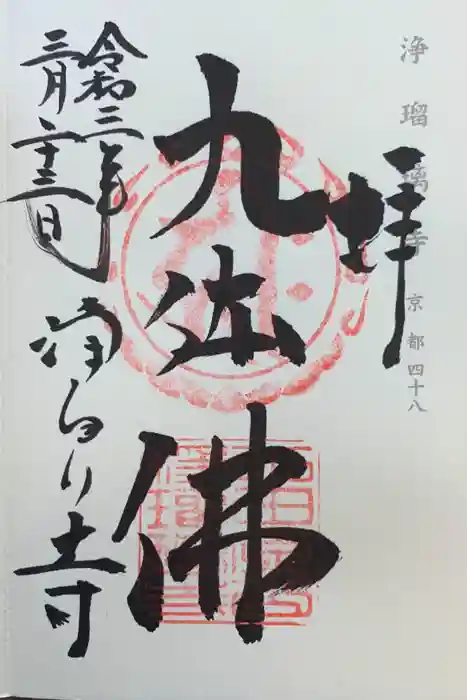 浄瑠璃寺 京都四十八
拝
九体佛
令和三年
三月二十三日
浄るり寺